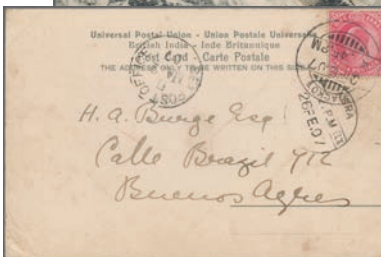 Universal Postal Union - Union Postale Universelle
British India - Inde Britannique
Post Card - Carte Postale
THE ADDRESS ONLY TO BE WRITTEN ON THIS SIDE
POST OFFICE
26 FE 07
H. A. Burge Esq
Calle Brazil 912
Buenos Ayres